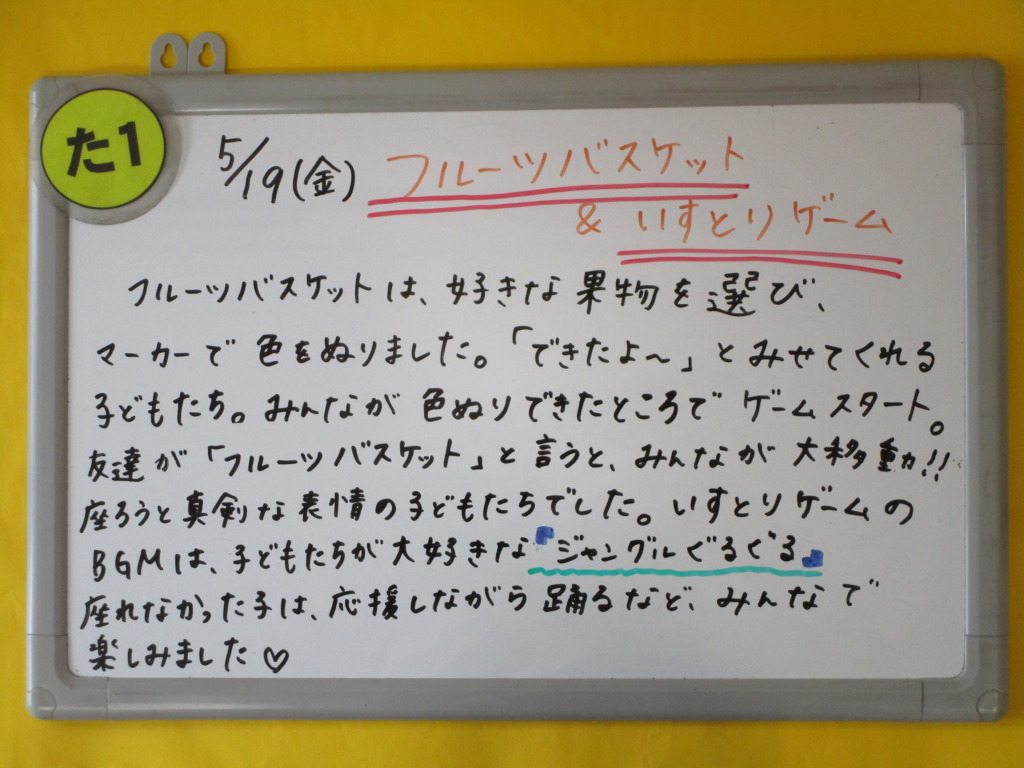 た1
5/19(金) フルーツバスケット
& いすとりゲーム
フルーツバスケットは、好きな果物を選び、
マーカーで色をぬりました。「できたよ〜」とみせてくれる
子どもたち。みんなが色ぬりできたところでゲームスタート。
友達が「フルーツバスケット」と言うと、みんなが大移動!!
座ろうと真剣な表情の子どもたちでした。いすとりゲームの
BGMは、子どもたちが大好きな『ジャングルぐるぐる』
座れなかった子は、応援しながら踊るなど、みんなで
楽しみました♡